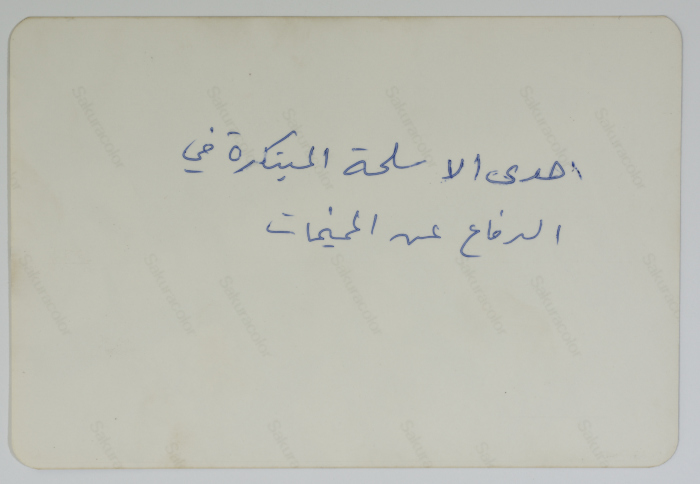 احدى الاسلحة المبتكرة في
الدفاع عن المخيمات
Sakuracolor
Sakuracolor
Sakuracolor
Sakuracolor
Sakuracolor
Sakuracolor
Sakuracolor
Sakuracolor
Sakuracolor
Sakuracolor
Sakuracolor
Sakuracolor